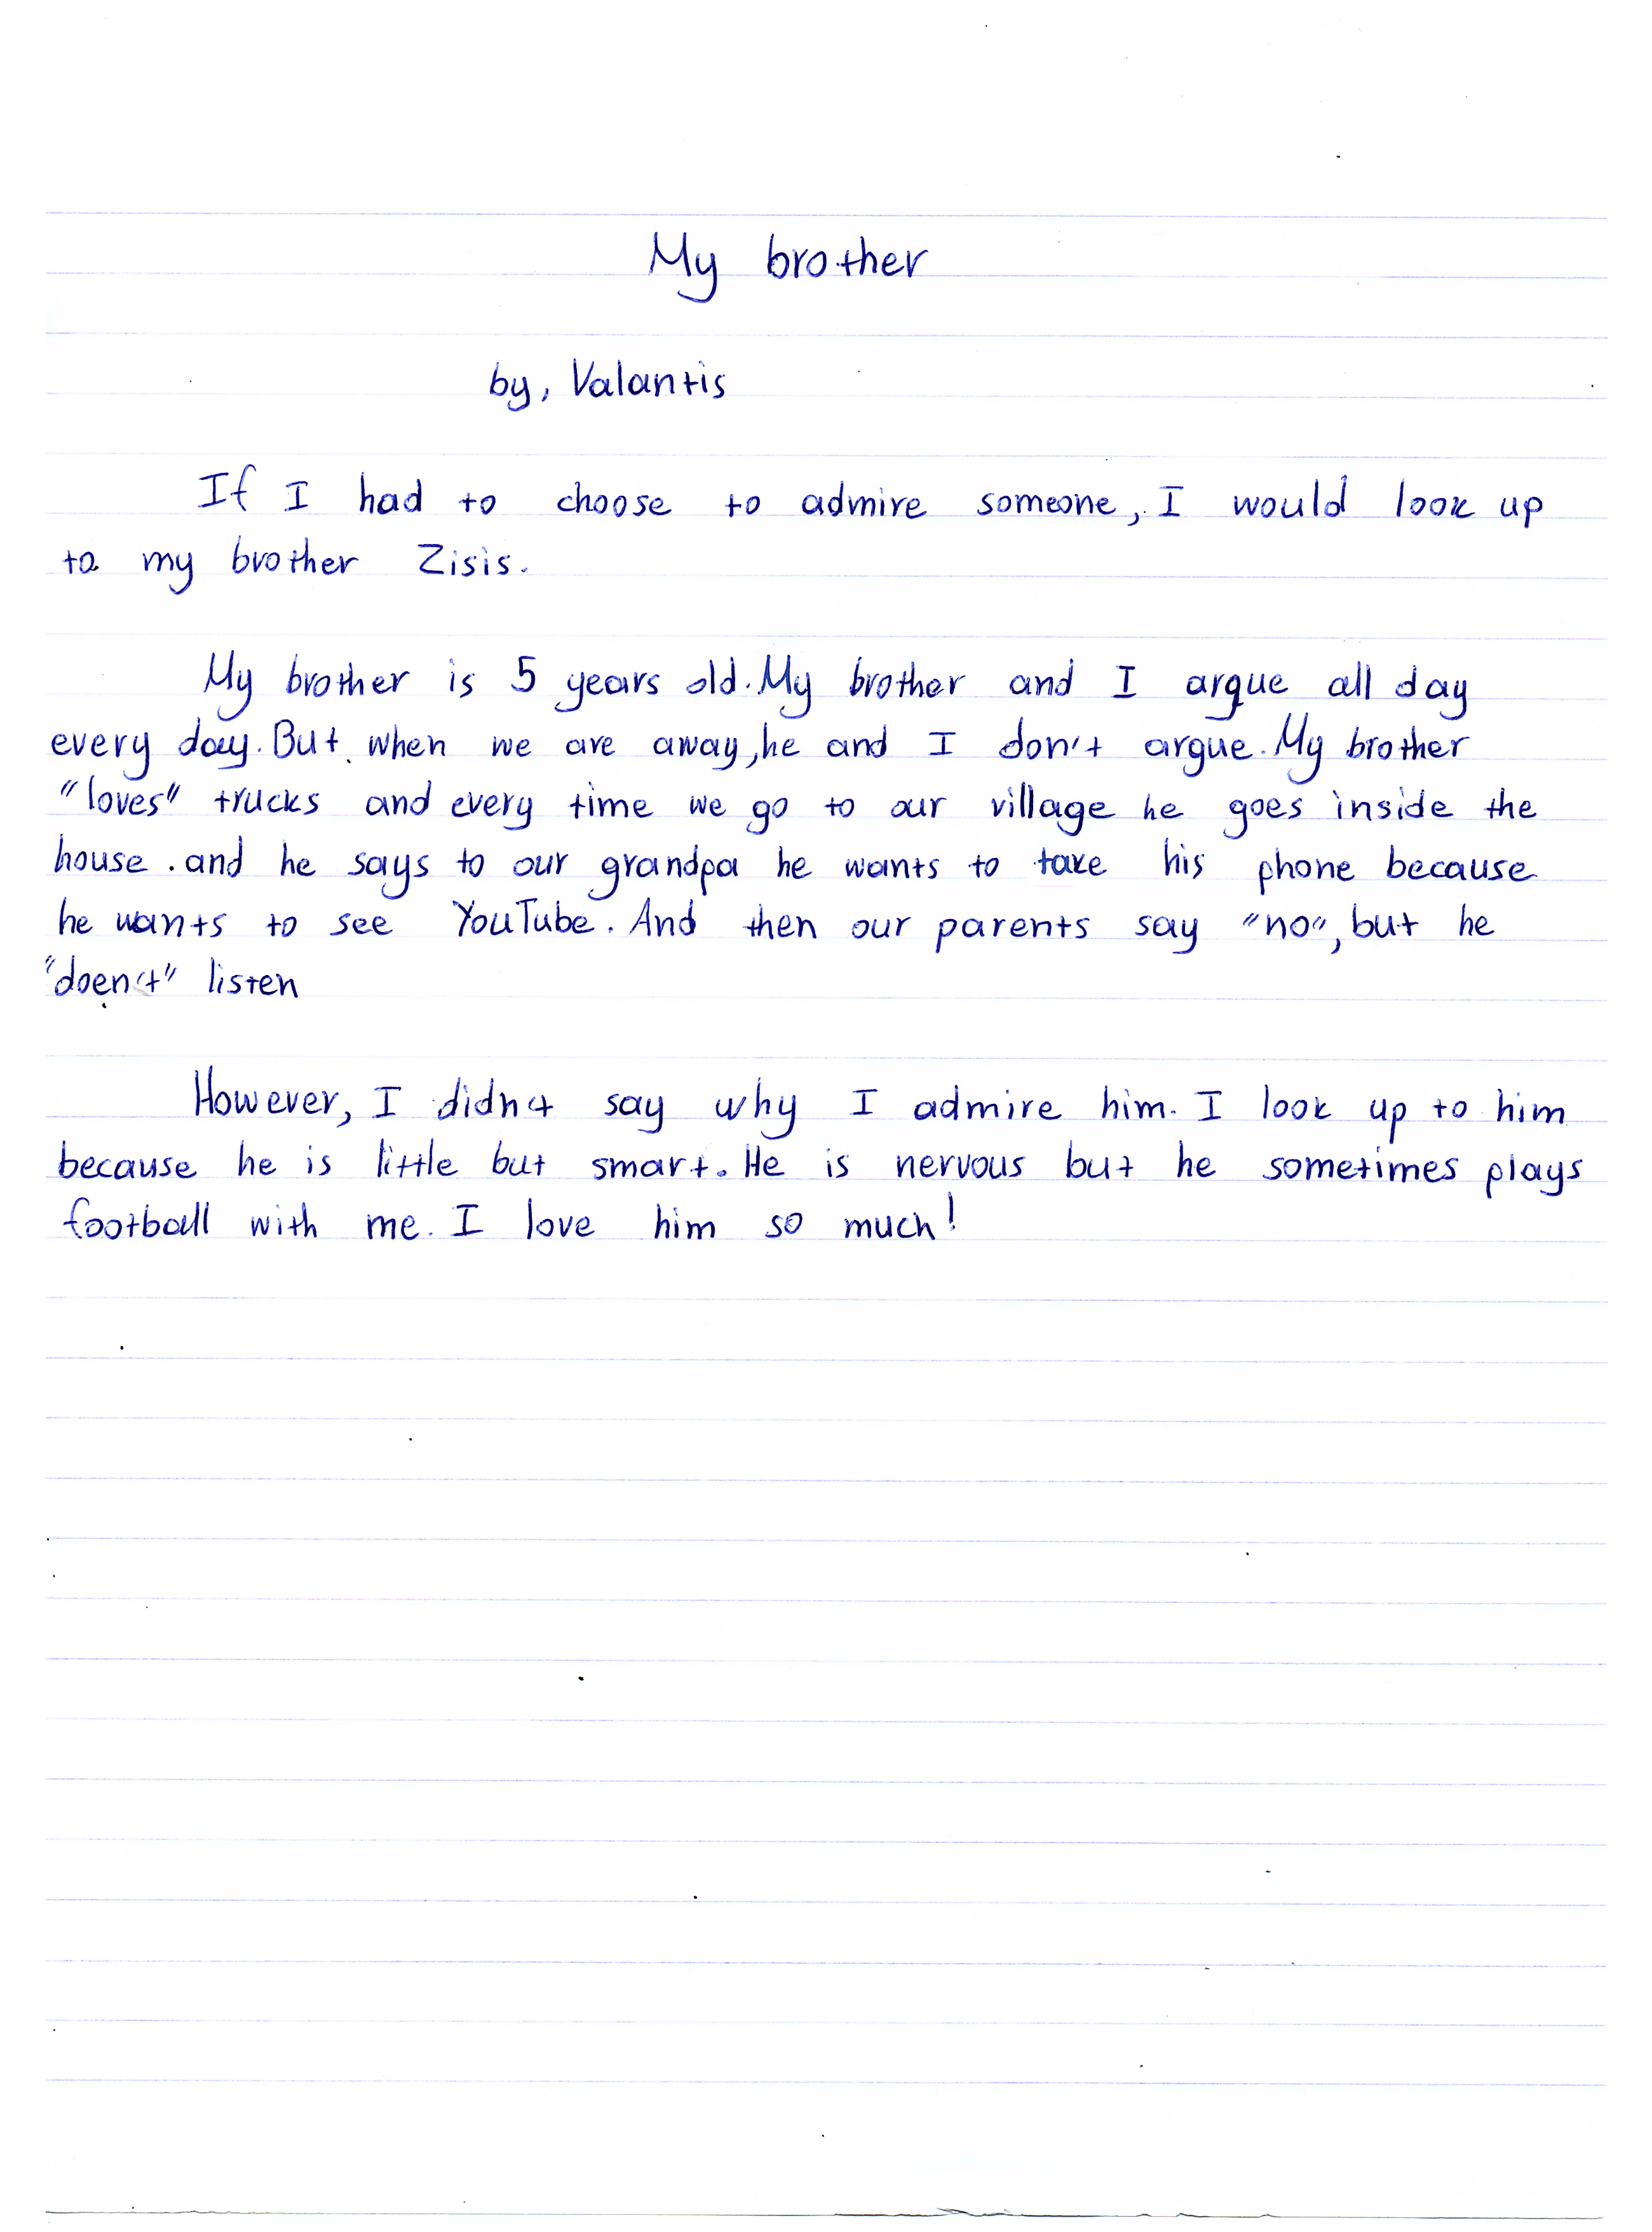 My brother
by, Valantis
If I had to choose to admire someone, I would look up
to my brother Zisis.
My brother is 5 years old. My brother and I argue all day
every day. But when we are away, he and I don't argue. My brother
"loves" trucks and every time we go to our village he goes inside the
house . and he says to our grandpa he wants to take his phone because
he wants to see YouTube. And then our parents say "no", but he
"doen't" listen
However, I didn't say why I admire him. I look up to him
because he is little but smart. He is nervous but he sometimes plays
football with me. I love him so much!